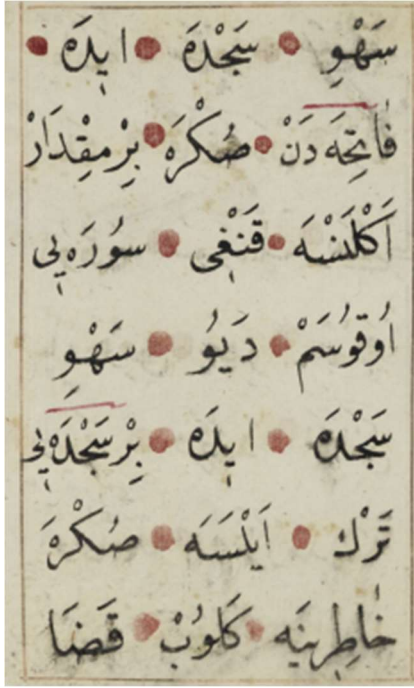 سَهْوِ سَجْدَهٔ ایدَهٔ
فَاتِحَه دَنْ صُكْرَه بِرْ مِقْدَارْ
اَكْلَنْسَه قَنْغِی سُورَه یِی
اُوقُوسَمْ دَیُو سَهْوِ
سَجْدَهٔ ایدَهٔ بِرْ سَجْدَه یِی
تَرْك اَیْلَسَه صُكْرَه
خَاطِرِینَه كَلُوبْ قَضَا